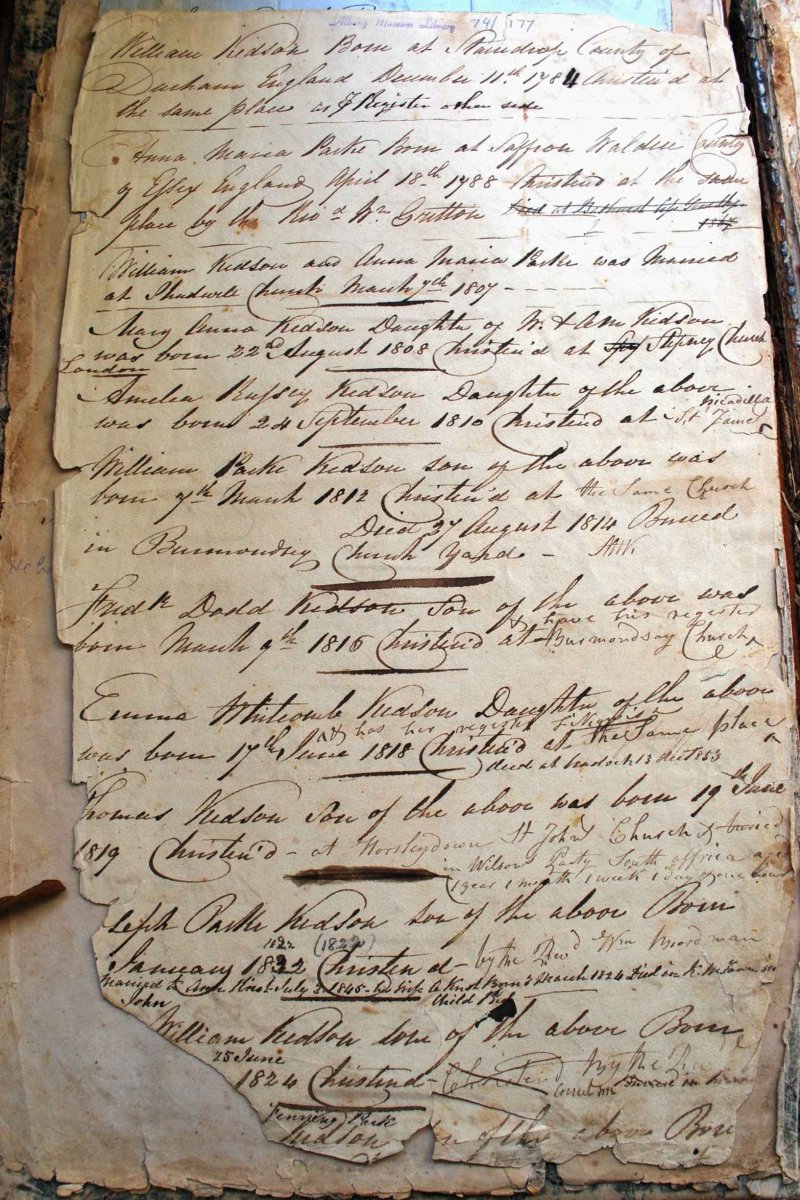 Albany Museum Library 74/177
William Kidson Born at Staindrop County of
Durham England December 11th 1784 Christen'd at
the same place as Register other side
Anna Maria Parke Born at Saffron Walden County
of Essex England April 18th 1788 Christen'd at the same
place by the Revd Wm Gretton Died at Bathurst
William Kidson and Anna Maria Parke was Married
at Shadwell Church March 7th 1807
Mary Anna Kidson Daughter of W. & AM Kidson
was born 22d August 1808 Christen'd at Stepney Church
London
Amelia Kidson Daughter of the above
Picadilla
was born 24 September 1810 Christen'd at St James
William Parke Kidson son of the above was
born 7th March 1812 Christen'd at the Same Church
Died 27 August 1814 Buried
in Burmondsey Church Yard - AMK
Fredk Dodd Kidson Son of the above was
& have his register
born March 9th 1816 Christen'd at Burmondsay Church
Emma Whitcomb Kidson Daughter of the above
has her register
was born 17th June 1818 Christen'd at the Same place
died at 13 1853
Thomas Kidson Son of the above was born 19th June
1819 Christen'd - at Horsleydown St Johns Church & buried
in Wilsons Party South Affrica age
1 year 1 month 1 week 1 day & one hour
Parke Kidson son of the above Born
1822 (1822)
January Christend - by the Revd Wm Boardman
Married to Ann Knot July 2 1845 - his wife A Knot Born 3 March 1824 Died in
John Child Bed
William Kidson sone of the above Born
25 June
1824 Christend - Christend by the
Correct
Jennings Park
Kidson of the above Born